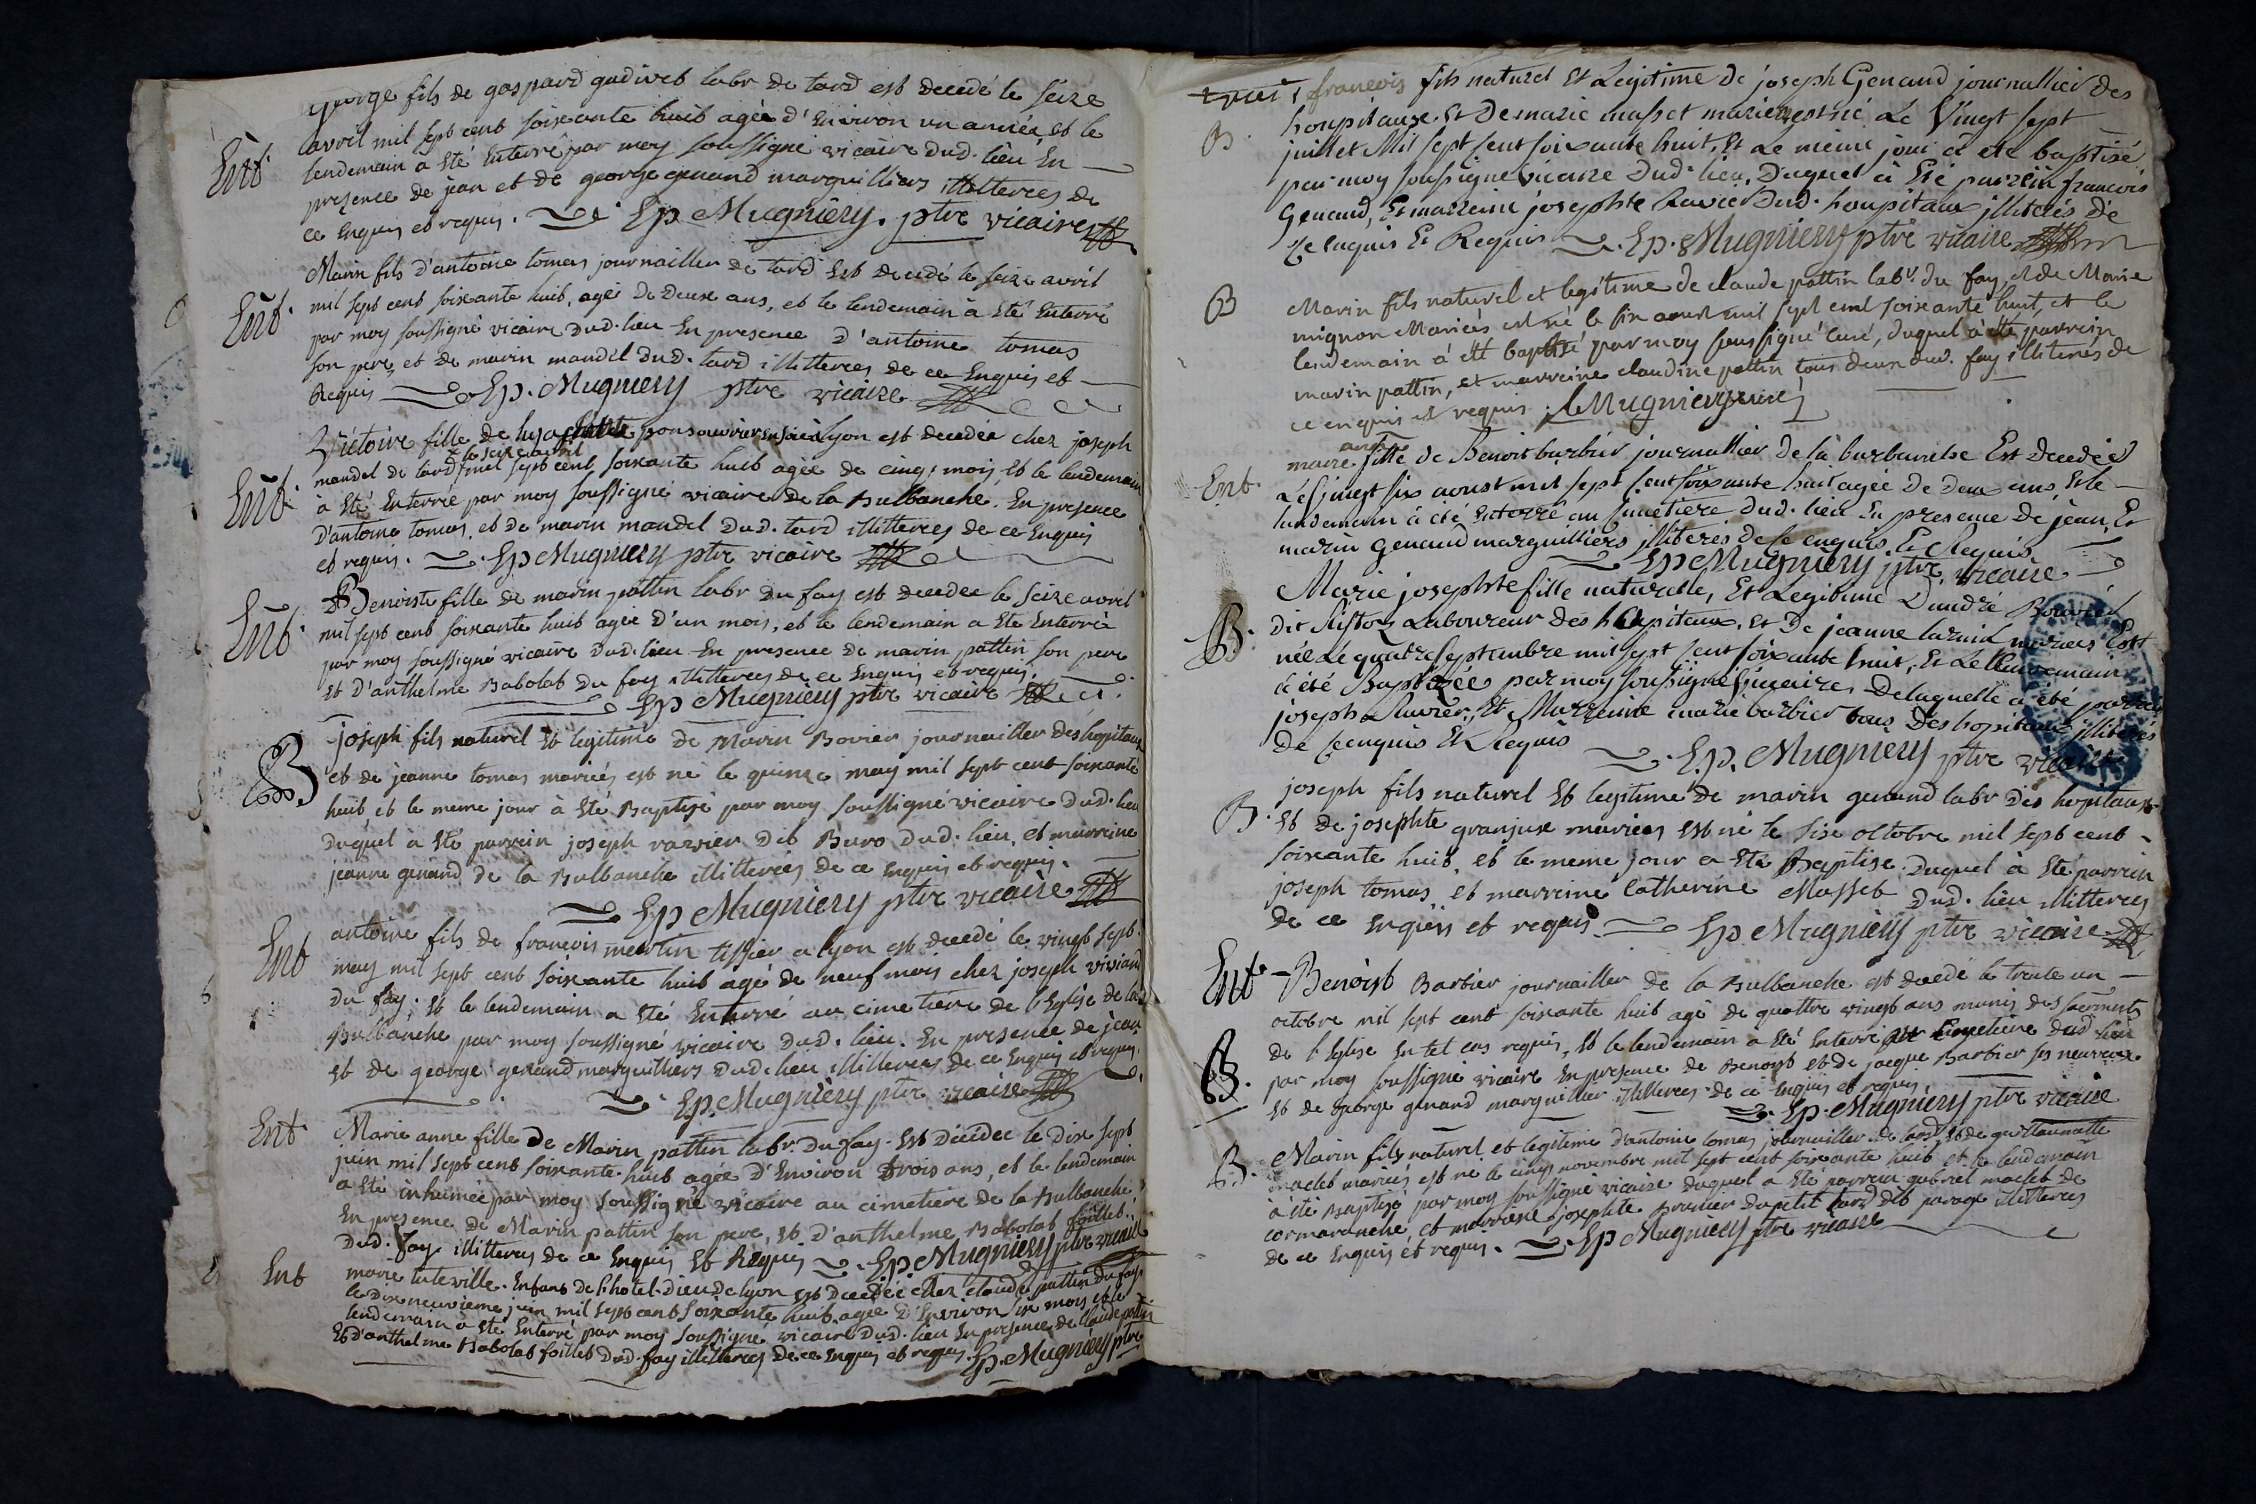 george fils de gaspard gudivet labr de tard est decedé le seize
avril mil sept cent soixante huit agée d'environ un année, et le
Ent. lendemain a eté Enterré par moy soussigne vicaire dud. lieu En
presence de jean et de george genand marguilliers illitterees de
ce Enquis et requis. Ep Mugniery. ptre vicaire
Marin fils d'antoine tomas journailler de tard Est decedé le seize avril
Ent. mil sept cent soixante huit, agé de deux ans, et le lendemain à eté Enterré
par moy soussigné vicaire dud. lieu En presence d'antoine tomas
son pere, et de marin mandel dud. tard illitterees de ce Enquis et
Requis Ep. Mugniery ptre vicaire
Victoire fille de pons ouvrier à lyon est decedée chez joseph
le seize avril
Ent. mandel de tard mil sept cent soixante huit agée de cinq mois, et le lendemain
à eté Enterrée par moy soussigné vicaire de la Bulbanche. En presence
d'antoine tomas, et de marin mandel dud. tard illitterees de ce Enquis
et requis. Ep Mugniery ptre vicaire
Benoiste fille de marin pattin labr du fay est decedée le seize avril
Ent. mil sept cent soixante huit agée d'un mois, et le lendemain a eté Enterrée
par moy soussigné vicaire dud. lieu En presence de marin pattin son pere
et d'anthelme Babolat du fay illitterees de ce Enquis et requis.
Ep Mugniery ptre vicaire
joseph fils naturel et legitime de Marin Bovier journailler des hopitaux
B. et de jeanne tomas mariés est né le quinze may mil sept cent soixante
huit, et le meme jour à eté Baptisé par moy soussigné vicaire dud. lieu
duquel à eté parrein joseph ravier dit Buro dud. lieu, et marreine
jeanne genand de la Bulbanche illitterees de ce Enquis et requis.
Ep Mugniery ptre vicaire
antoine fils de francois mertin tissier a lyon est decedé le vingt sept
Ent may mil sept cent soixante huit agé de neuf mois chez joseph viviand
du fay; et le lendemain a eté Enterré au cimetiere de l'Eglise de la
Bulbanche par moy soussigné vicaire dud. lieu. En presence de jean
et de george genand marguilliers dud. lieu illitterees de ce Enquis et requis.
Ep. Mugniery ptre vicaire
Ent. Marie anne fille de Marin pattin labr. du fay. Est decedée le dix sept
juin mil sept cent soixante huit agée d'Environ trois ans, et le lendemain
a eté inhumée par moy soussigné vicaire au cimetiere de la Bulbanche
En presence de Marin pattin son pere, et d'anthelme Babolat foillet.
dud. fay illitterees de ce Enquis et Requis Ep. Mugniery ptre vicaire
Ent marie tuteville. Enfant de l'hotel-dieu de lyon est decedée chez claude pattin du fay
le dix neuvieme juin mil sept cent soixante huit agée d'Environ six mois et le
lendemain a eté Enterré par moy soussigné vicaire dud. lieu En presence de claude pattin
et d'anthelme Babolat foillet dud. fay illitterees de ce Enquis et requis. Ep. Mugniery ptre
francois fils naturel Et Legitime de joseph Genand journallier des
B. houpitaux. Et de marie masset mariez, est né Le Vingt sept
juillet Mil sept sent soixante huit, Et Le meme jour a ete baptisé
par moy sousigné vicaire Dud. lieu, Duquel à Eté parrein francois
Genand, Et marreine josephte Ravier Dud. houpitaux illiterés de
ce enquis Et Requis Ep. Mugniery ptre vicaire
B Marin fils naturel et legitime de claude pattin labr. du fay, et de Marie
mignon Mariés est né le six aoust mil sept cent soixante huit, et le
lendemain à eté baptisé par moy soussigné curé, duquel à eté parrein
marin pattin, et marreine claudine pattin tous deux dud. fay illiterés de
ce enquis et requis. Mugniery curé
Ent. marie fille de Benoit barbier journallier de la burbanche Est decedée
Le vingt six aoust mil sept sent soixante huit agée De deux ans, Et le
lendemain à eté Enterré au simetiere dud. lieu En presence De jean, Et
marin Genand marguilliers illiterés de ce enquis Et Requis
Ep Mugniery ptre vicaire
Marie josephte fille naturelle, Et Legitime D'andré Bouvier
B. dit Laboureur des hôpitaux, Et De jeanne mariés Est
née Le quatre septembre mil sept sent soixante huit, Et Le lendemain
à été Baptizée par moy sousigné vicaire, De laquelle a été parrein
joseph Ravier, Et Marreine marie barbier tous Des hopitaux illiterés
De ce enquis Et Requis Ep. Mugniery ptre vicaire
joseph fils naturel et legitime de marin genand labr des hopitaux
B. et de josephte granjux mariés est né le six octobre mil sept cent
soixante huit, et le meme jour a eté Baptisé. duquel à eté parrein
joseph tomas, et marreine Catherine Masset dud. lieu illitterees
de ce Enquis et requis. Ep Mugniery ptre vicaire
Ent. Benoist Barbier journailler de la Bulbanche est decedé le trente un
octobre mil sept cent soixante huit agé de quattre vingt ans munis des sacrements
de l'Eglise En tel cas requis, et le lendemain a eté Enterré au cimetiere dud lieu
B. par moy soussigné vicaire En presence de Benoist et de jacque Barbier ses neuveux
et de george genand marguillier illitterees de ce Enquis et requis.
Ep. Mugniery ptre vicaire
B. Marin fils naturel et legitime d'antoine tomas journailler de tard, et de guillaumatte
maclet mariés est né le cinq novembre mil sept cent soixante huit, et le lendemain
à eté Baptisé par moy soussigné vicaire duquel a eté parrein gabriel maclet de
cormaranche, et marreine josephte du petit tard dit parage illitterees
de ce Enquis et requis. Ep Mugniery ptre vicaire